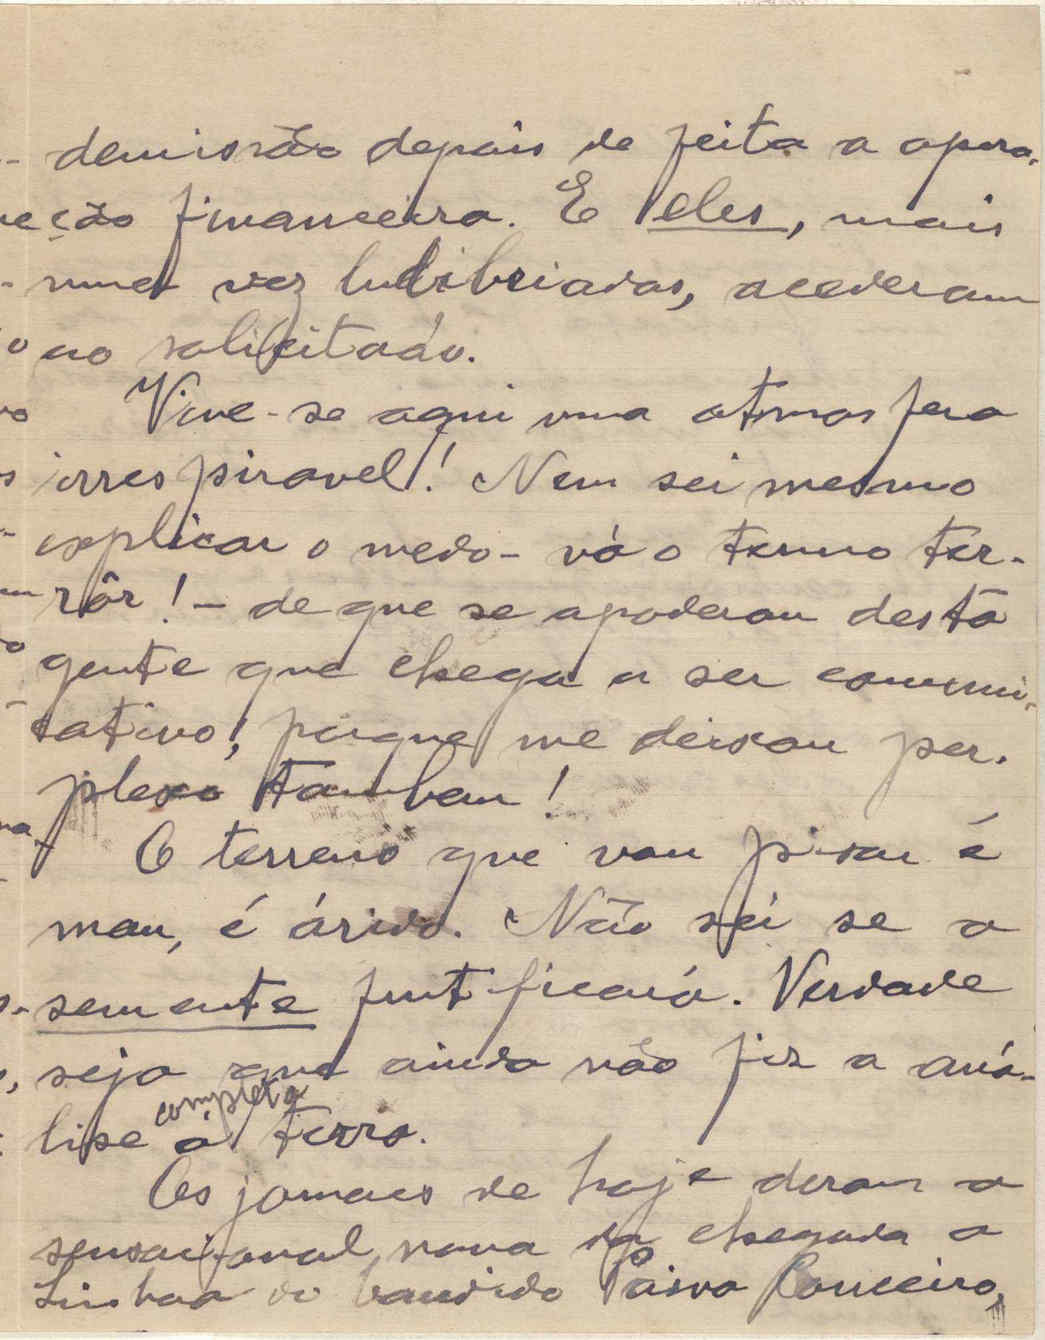 demissão depois de feita a opera-
ção financeira. E eles, mais
uma vez ludibriados, acederam
ao solicitado.
Vive-se aqui uma atmosfera
irrespiravel! Nem sei mesmo
explicar o medo - vá o termo ter-
rôr! - de que se apoderou desta
gente que chega a ser comuni-
cativo, porque me deixou per-
plexo tambem!
O terreno que vou pisar é
mau, é árido. Não sei se a
semente frutificará. Verdade
seja que ainda não fiz a aná-
lise completa á terra.
Os jornaes de hoje deram a
sensacional nova da chegada a
Lisboa do bandido Paiva Couceiro,